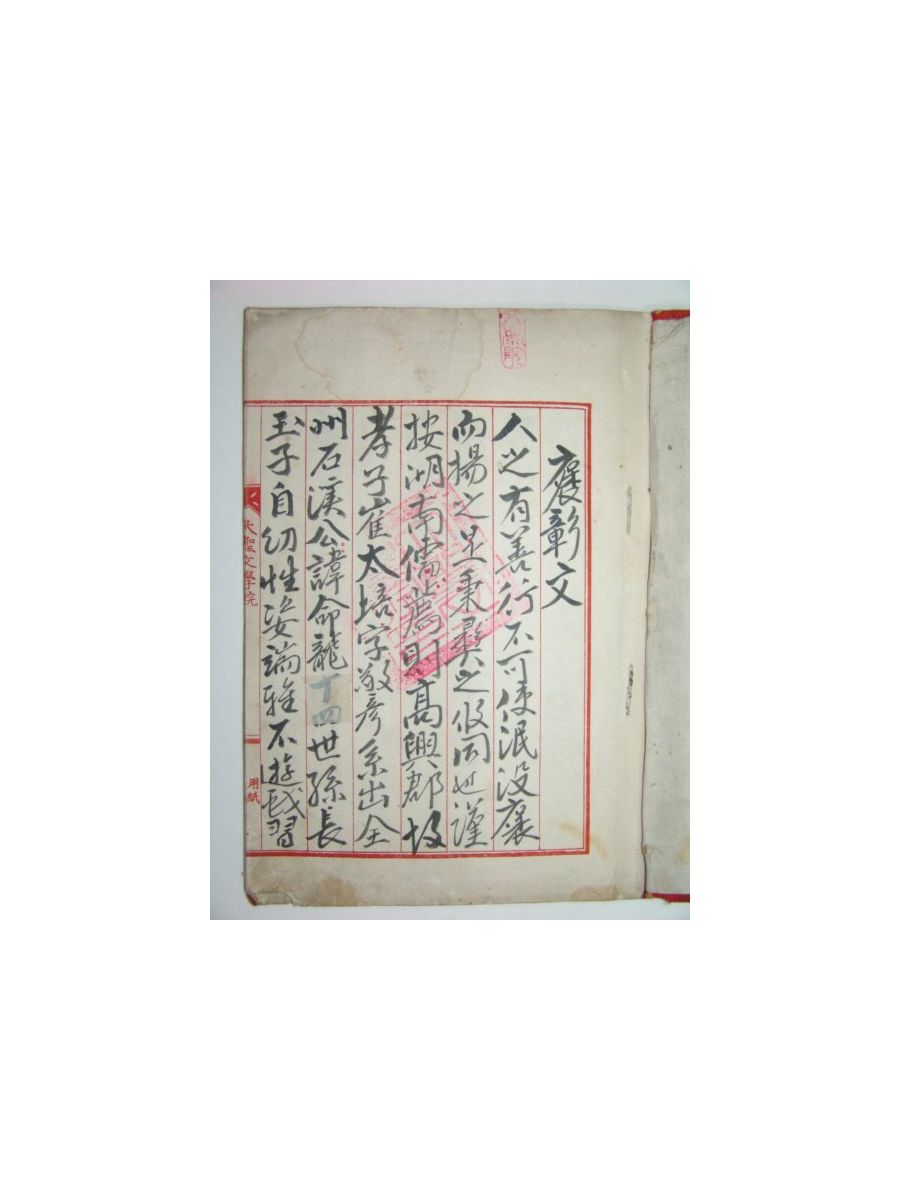 褒彰文
人之有善行不可使泯没襃
而揚之是秉彛之攸同也謹
按湖南儒薦則高興郡故
孝子崔太培字敬彦系出全
州石溪公諱命龍十四世孫長
玉子自幼性姿端雅不遊戱習
大聖文學院
用紙